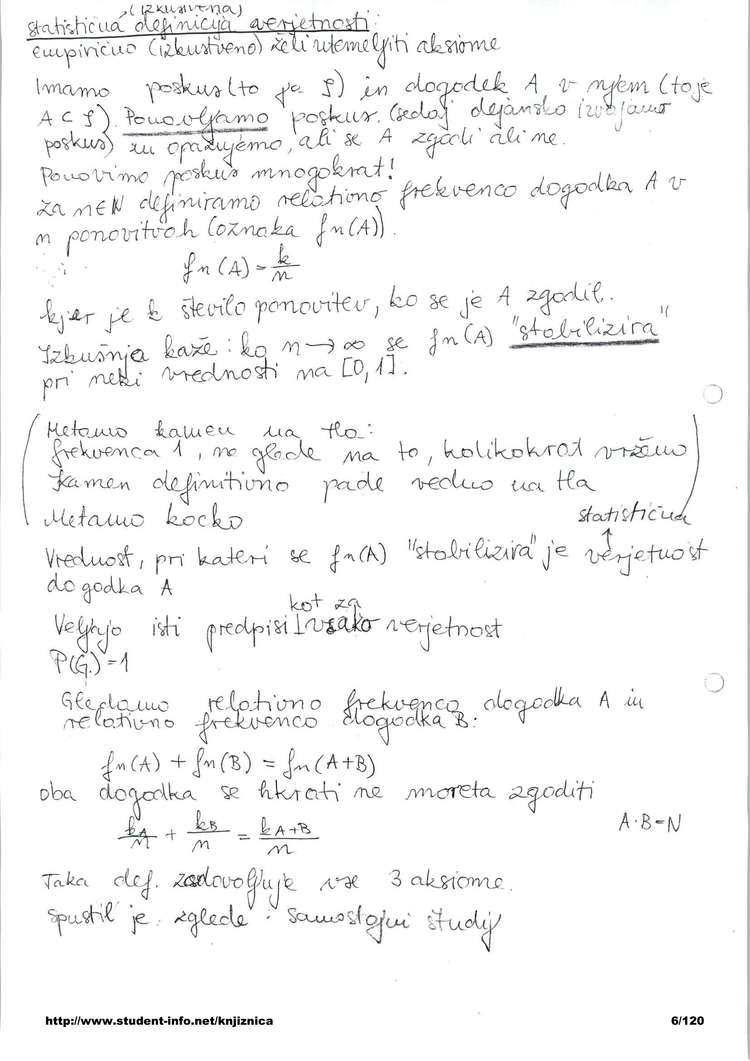 (izkustvena)
statistična definicija verjetnosti:
empirično (izkustveno) želi utemeljiti aksiome
Imamo poskus (to je S) in dogodek A v njem (to je
A ⊂ S). Ponovljamo poskus. (sedaj dejansko izvajamo
poskus) in opazujemo, ali se A zgodi ali ne.
Ponovimo poskus mnogokrat!
za n∈N definiramo relativno frekvenco dogodka A v
n ponovitvah (oznaka fn(A)).
fn(A) = k/n
kjer je k število ponovitev, ko se je A zgodil.
Izkušnja kaže: ko n → ∞ se fn(A) "stabilizira"
pri neki vrednosti na [0,1].
Metamo kamen na tla:
frekvenca 1, ne glede na to, kolikokrat vržemo
Kamen definitivno pade vedno na tla
Metamo kocko
statistična
Vrednost, pri kateri se fn(A) "stabilizira" je verjetnost
dogodka A
kot za
Veljajo isti predpisi vsako verjetnost
P(G.) = 1
Gledamo relativno frekvenco dogodka A in
relativno frekvenco dogodka B:
fn(A) + fn(B) = fn(A+B)
oba dogodka se hkrati ne moreta zgoditi
kA/n + kB/n = kA+B/n A·B=N
Taka def. zadovoljuje vse 3 aksiome.
Spustil je zglede: samostojni študij
http://www.student-info.net/knjiznica 6/120